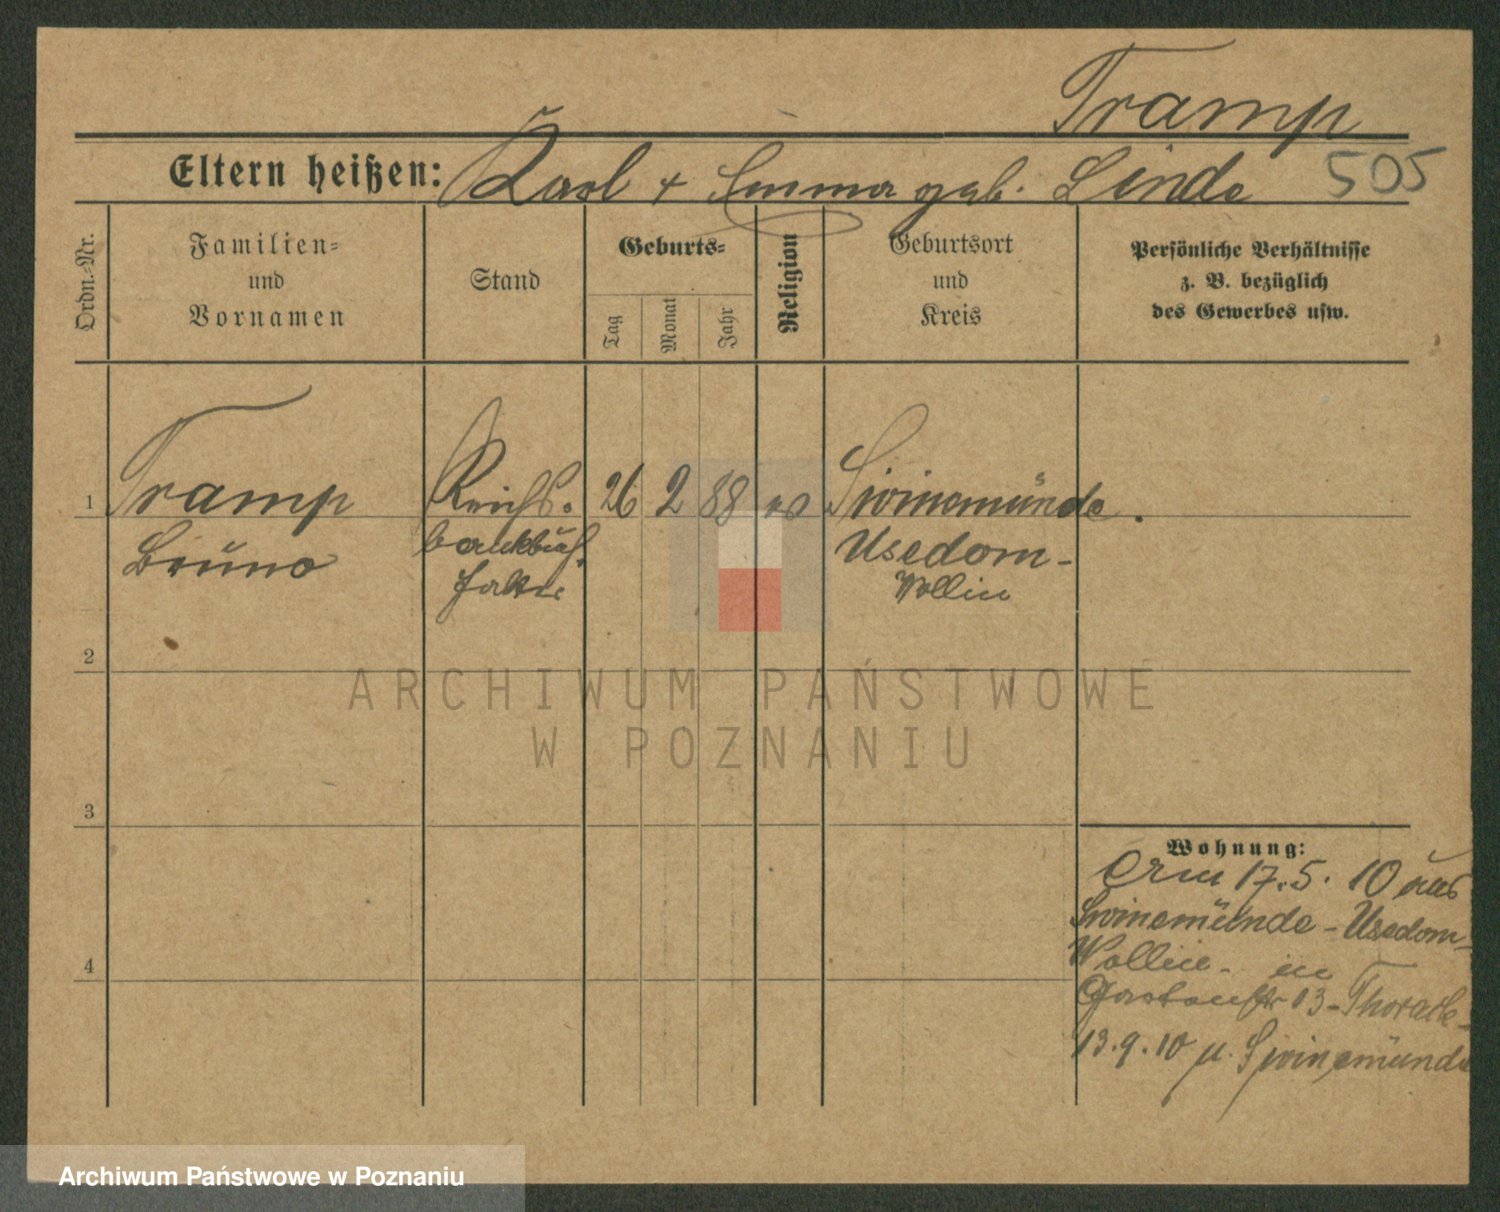 Tramp
Eltern heißen: Karl + Emma geb. Linde 505
Ordn.=Nr.
Familien=
und
Vornamen
Stand
Geburts=
Tag
Monat
Jahr
Religion
Geburtsort
und
Kreis
Persönliche Verhältnisse
z. B. bezüglich
des Gewerbes usw.
1 Tramp Reichs. 26 2 88 ev Swinemünde.
Bruno bankbuch Usedom-
halter Wollin
2
ARCHIWUM PAŃSTWOWE
W POZNANIU
3
Wohnung:
17.5.10 aus
Swinemünde-Usedom-
4 Wollin- in
13-
13.9.10 n. Swinemünde
Archiwum Państwowe w Poznaniu